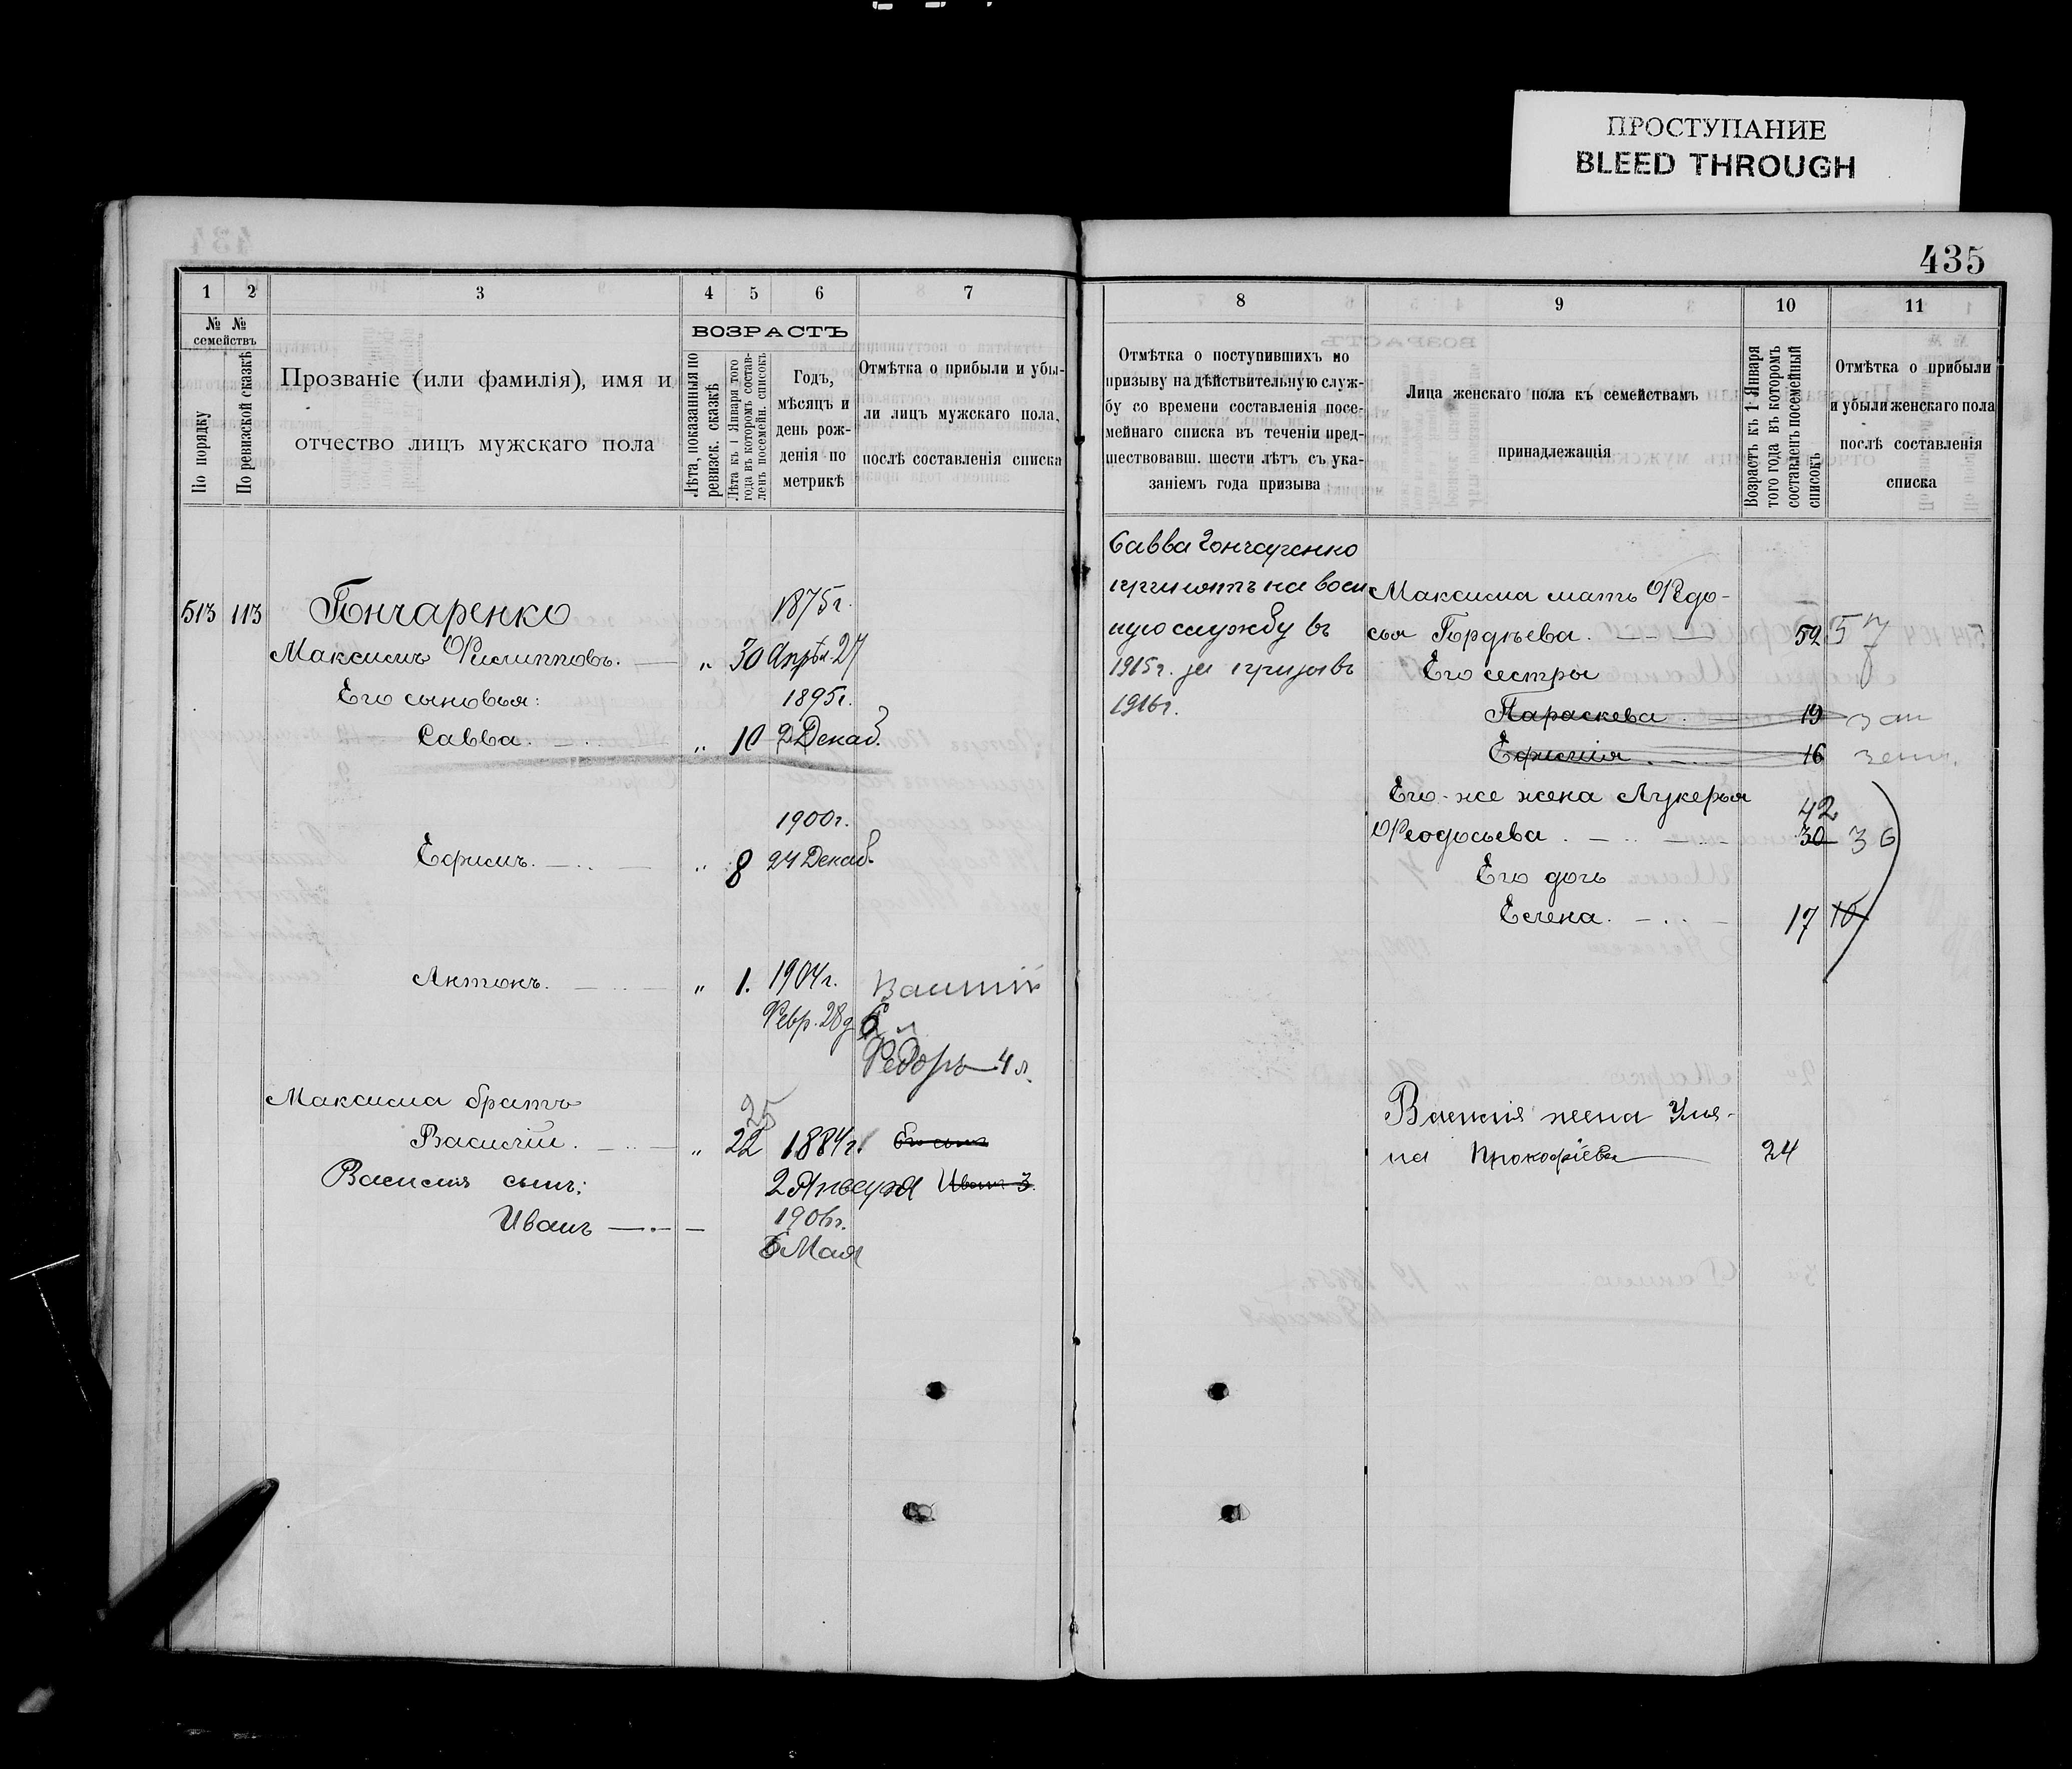 ПРОСТУПАНИЕ
BLEED THROUGH
435
1 2 3 4 5 6 7
№ №
семействъ
По порядку
По ревизской сказкѣ
Прозваніе (или фамилія), имя и
отчество лицъ мужскаго пола
ВОЗРАСТЪ
Лѣта, показанныя по
ревизск. сказкѣ
Лѣта къ 1 Января того
года въ которомъ состав-
ленъ посемейн. списокъ
Годъ,
мѣсяцъ и
день рож-
денія по
метрикѣ
Отмѣтка о прибыли и убы-
ли лицъ мужскаго пола,
послѣ составленія списка
513 113 Гончаренко 1875г.
Максимъ Филипповъ. — „ 30 Апрѣл 27
Его сыновья: 1895г.
Савва. — „ 10 2 Декаб.
1900г.
Ефимъ. — „ 8 24 Декаб.
Антонъ. — „ 1. 1904г.
Февр. 28д
6
Федоръ — 4 л.
Максима братъ 25
Василій. — „ 22 1884г. Его сынъ
Василія сынъ: 2 Января Иванъ 3.
Иванъ — 1906г.
6 Мая
8 9 10 11
Отмѣтка о поступившихъ по
призыву на дѣйствительную служ-
бу со времени составленія посе-
мейнаго списка въ теченіи пред-
шествовавш. шести лѣтъ съ ука-
заніемъ года призыва
Лица женскаго пола къ семействамъ
принадлежащія
Возрастъ къ 1 Января
того года въ которомъ
составленъ посемейный
списокъ
Отмѣтка о прибыли
и убыли женскаго пола
послѣ составленія
списка
Савва Гончаренко
принятъ на воен
ную службу въ
1915г. за призывъ
1916г.
Максима мать Федо-
сья Гордѣева. — 52 57
Его сестры
Параскева. — 19 зам
Ефимія. — 16 зам.
Его-же жена Лукерья 42
Феодосьева. — 30 36
Его дочь
Елена. — 17 10
Василія жена Улья-
на Прокофіева — 24